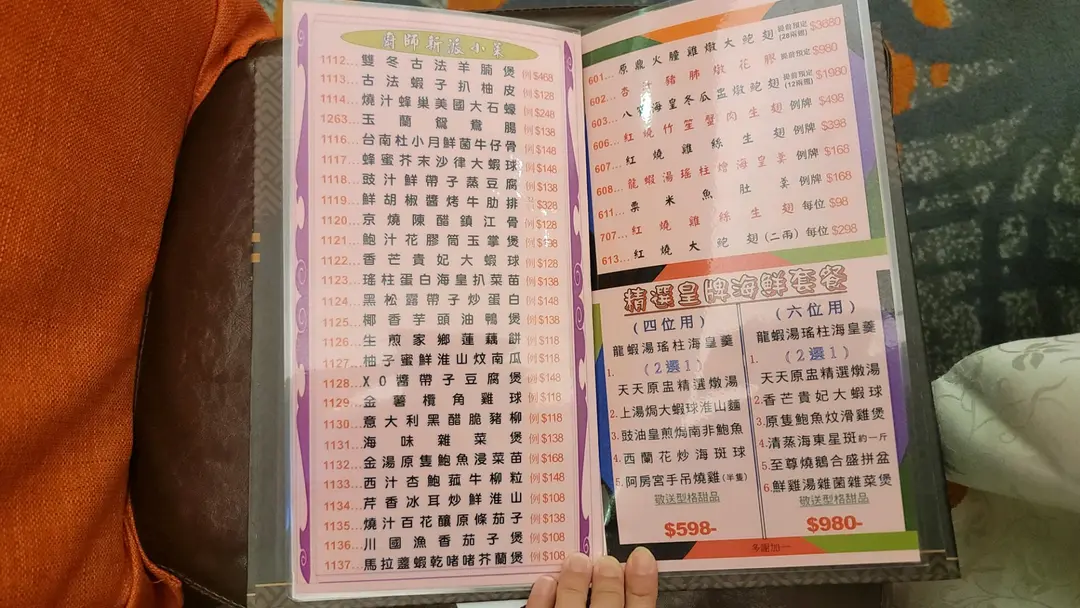 廚師新派小菜
1112...雙冬古法羊腩煲 例$468
1113...古法蝦子扒柚皮 例$128
1114...燒汁蜂巢美國大石蠔 例$248
1263...玉蘭鴛鴦腸 例$138
1116...台南杜小月鮮菌牛仔骨 例$148
1117...蜂蜜芥末沙律大蝦球 例$148
1118...豉汁鮮帶子蒸豆腐 例$138
1119...鮮胡椒醬烤牛肋排 例$328
1120...京燒陳醋鎮江骨 例$128
1121...鮑汁花膠筒玉掌煲
1122...香芒貴妃大蝦球 例$128
1123...瑤柱蛋白海皇扒菜苗 例$138
1124...黑松露帶子炒蛋白 例$148
1125...椰香芋頭油鴨煲 例$138
1126...生煎家鄉蓮藕餅 例$118
1127...柚子蜜鮮淮山炆南瓜 例$118
1128...XO醬帶子豆腐煲 例$148
1129...金薯欖角雞球 例$118
1130...意大利黑醋脆豬柳 例$118
1131...海味雜菜煲 例$138
1132...金湯原隻鮑魚浸菜苗 例$168
1133...西汁杏鮑菰牛柳粒 例$148
1134...芹香冰耳炒鮮淮山 例$108
1135...燒汁百花釀原條茄子 例$138
1136...川國漁香茄子煲 例$108
1137...馬拉盞蝦乾啫啫芥蘭煲 例$108
601...原鼎火朣雞燉大鮑翅 提前預定(28兩雞) $3680
602...杏汁豬肺燉花膠 提前預定 $980
603...八寶海皇冬瓜盅燉鮑翅 提前預定(12兩翅) $1980
606...紅燒竹笙蟹肉生翅 例牌 $498
607...紅燒雞絲生翅 例牌 $398
608...龍蝦湯瑤柱燴海皇羹 例牌 $168
611...粟米魚肚羹 例牌 $168
707...紅燒雞絲生翅 每位 $98
613...紅燒大鮑翅(二兩) 每位 $298
精選皇牌海鮮套餐
(四位用)
龍蝦湯瑤柱海皇羹
1. (2選1)
天天原盅精選燉湯
2.上湯焗大蝦球淮山麵
3.豉油皇煎焗南非鮑魚
4.西蘭花炒海斑球
5.阿房宮手吊燒雞(半隻)
敬送型格甜品
$598-
(六位用)
龍蝦湯瑤柱海皇羹
1. (2選1)
天天原盅精選燉湯
2.香芒貴妃大蝦球
3.原隻鮑魚炆滑雞煲
4.清蒸海東星斑約一斤
5.至尊燒鵝合盛拼盆
6.鮮雞湯雜菌雜菜煲
敬送型格甜品
$980-
多謝加一